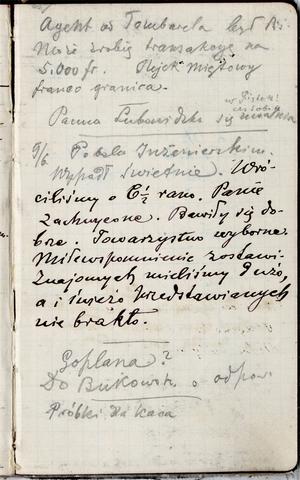 Agent od Tombarela był
Może zrobię transakcyę na
5.000 fr. Olejek miętowy
franco granica.
w Piątek!
Panna Lubomirska się
9/6 Bal Inżynierskim.
Wypadł świetnie. Wró-
ciliśmy o 6½ rano. Panie
zachwycone. Bawiły się do-
brze. Towarzystwo wyborne.
Miłe wspomnienie zostawi-
Znajomych mieliśmy dużo,
a i świeżo przedstawianych
nie brakło.
Goplana?
Do Bukowsk. o odpow
Próbki dla Kaca